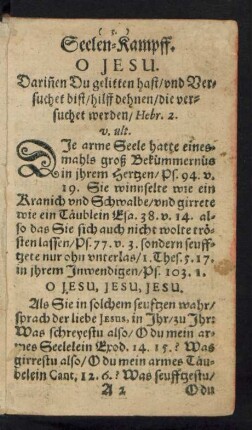 ( 3 )
Seelen-Kampff.
O JESU.
Dariñen Du gelitten hast/vnd Ver-
suchet bist/hilff dehnen/die ver-
suchet werden/ Hebr. 2.
v. ult.
DIe arme Seele hatte eines-
mahls groß Bekümmernüs
in ihrem Hertzen/Ps. 94. v.
19. Sie winnselte wie ein
Kranich vnd Schwalbe/vnd girrete
wie ein Täublein Esa. 38. v. 14. al-
so das Sie sich auch nicht wolte trö-
sten lassen/Ps. 77. v. 3. sondern seuff-
gete nur ohn vnterlas/1. Thes. 5. 17.
in ihrem Inwendigen/Ps. 103. 1.
O JESU, JESU, JESU.
Als Sie in solchem seuftzen wahr/
sprach der liebe JESUS, in Ihr/zu Ihr:
Was schreyestu also/O du mein ar-
mes Seelelein Exod. 14. 15.? Was
girrestu also/O du mein armes Täu-
belein Cant. 12. 6.? Was seufftzestu/
A 2 O du